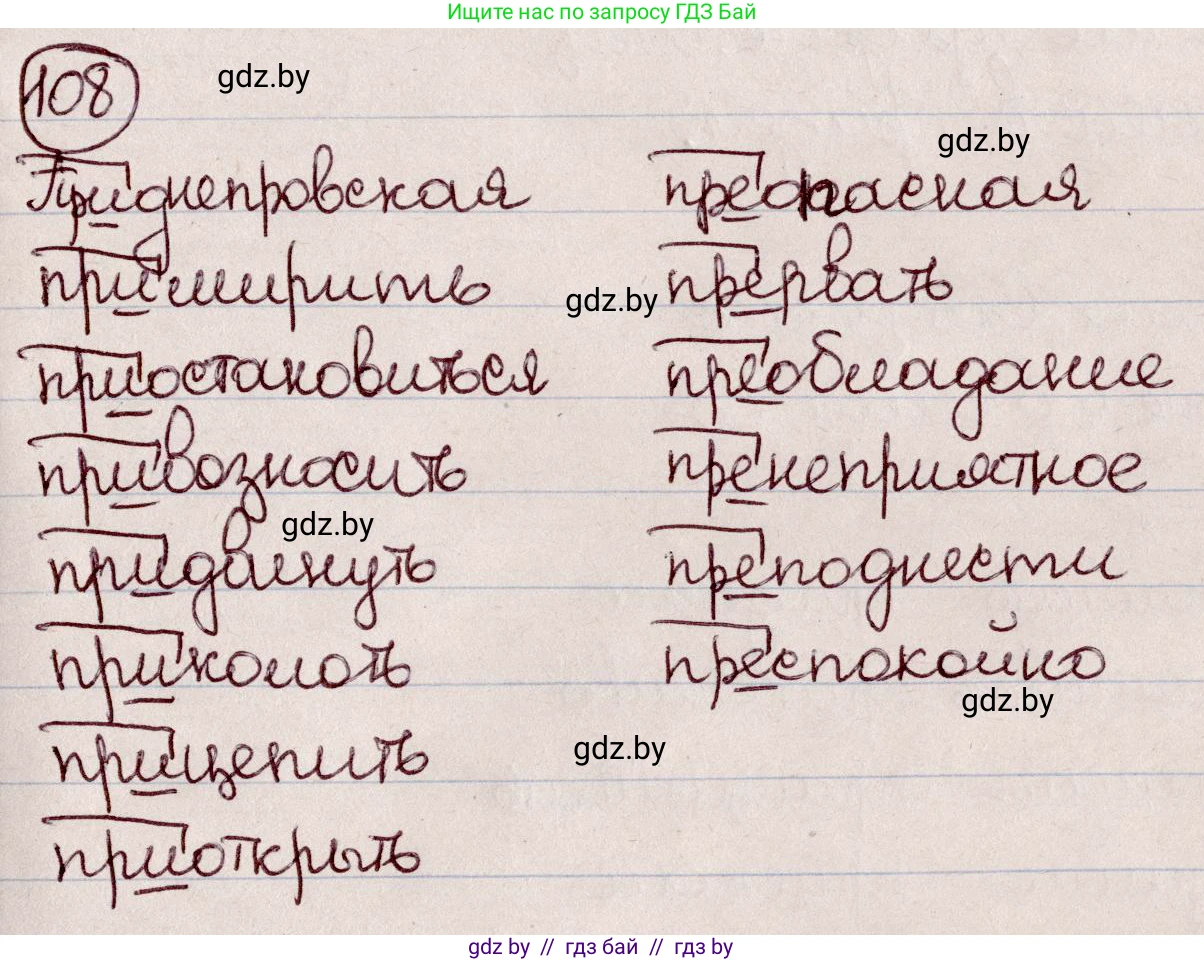 Ищите нас по запросу ГДЗ Бай
108
gdz.by
gdz.by
Приднепровская
примирить
gdz.by
приостановиться
привозносить
gdz.by
придвинуть
приколоть
прицепить
приоткрыть
преопасная
прервать
преобладание
пренеприятное
преподнести
преспокойно
gdz.by
gdz.by
gdz.by // гдз бай // гдз by